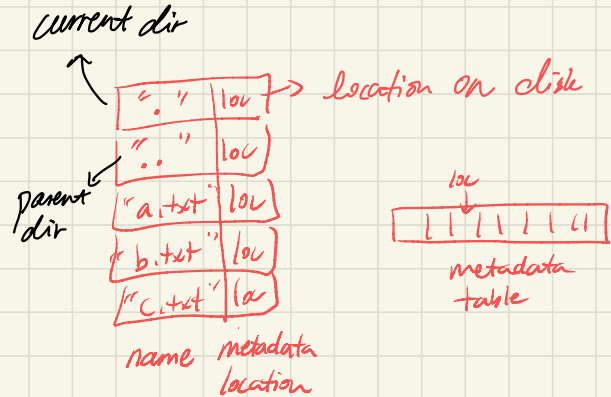 current dir
"." loc
location on disk
".." loc
parent
dir
"a.txt" loc
"b.txt" loc
"c.txt" loc
name metadata
location
loc
metadata
table